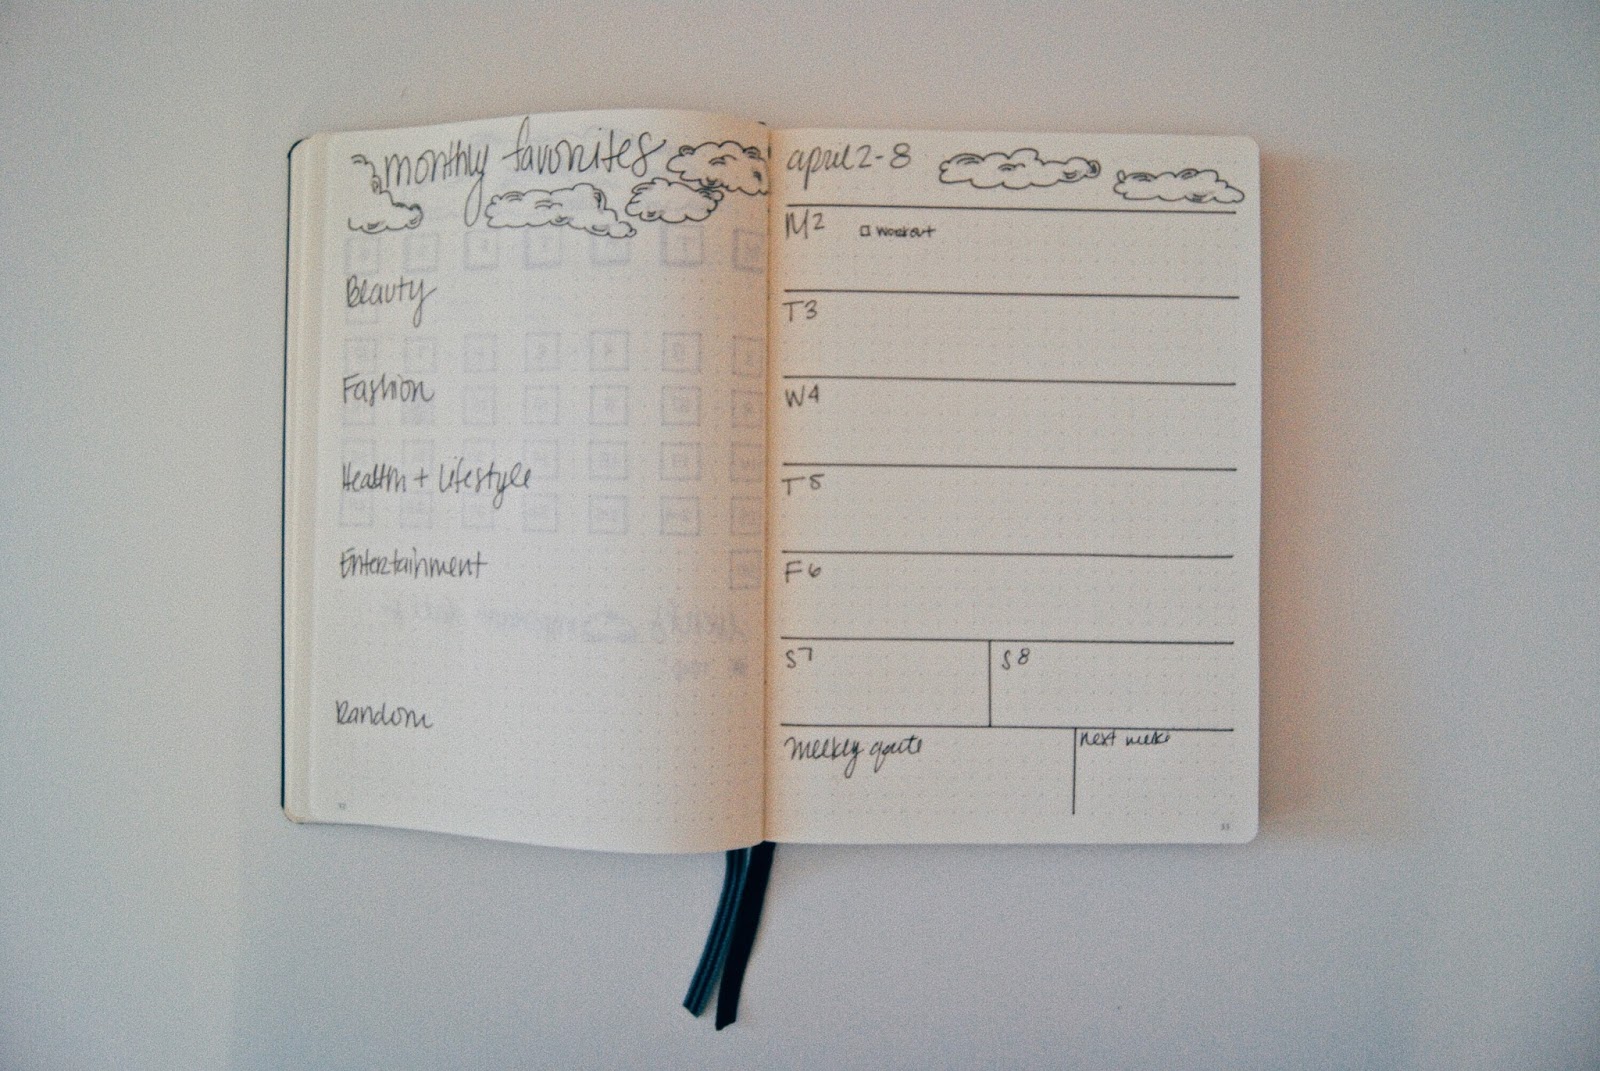 monthly favorites
Beauty
Fashion
Health + Lifestyle
Entertainment
Random
32
april 2-8
M2 workout
T3
W4
T5
F6
S7 S8
weekly quote next week
33